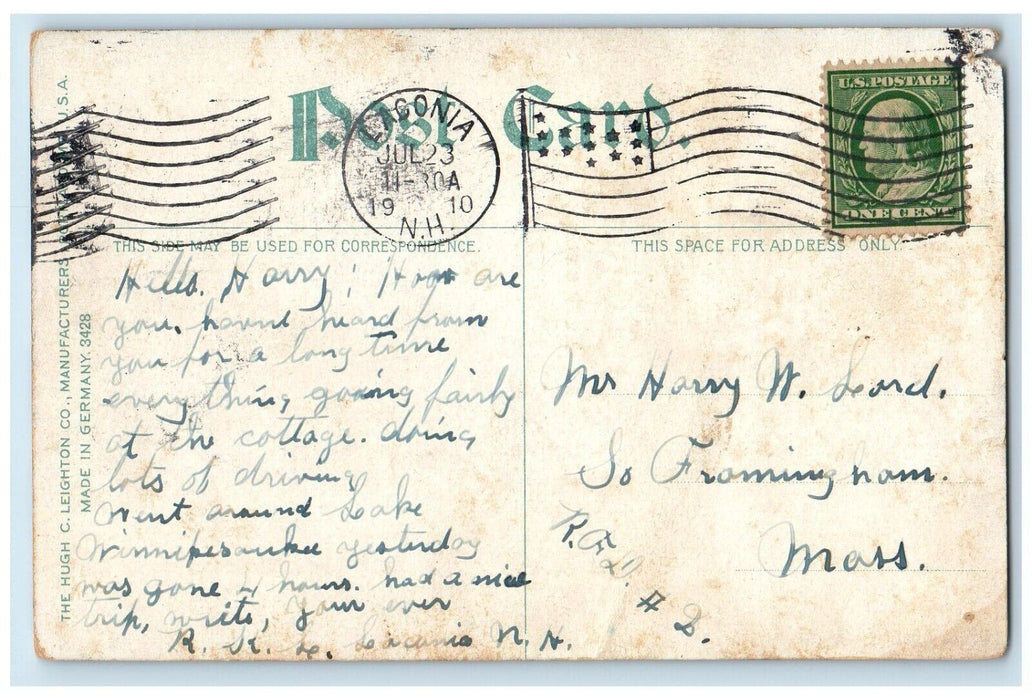 Post Card.
LACONIA
JUL 23
11-30A
19 10
N.H.
U.S. POSTAGE
ONE CENT
THE HUGH C. LEIGHTON CO., MANUFACTURERS U.S.A.
MADE IN GERMANY. 3428
THIS SIDE MAY BE USED FOR CORRESPONDENCE.
THIS SPACE FOR ADDRESS ONLY.
Hello. Harry; How are
you, havnt heard from
you for a long time
everything going fairly
at the cottage. doing
lots of driving
Went around Lake
Winnipesaukee yesterday
was gone 4 hours. had a nice
trip, write, your ever
R. K. L. Laconia N. H.
Mr Harry W. Lord.
So Framingham.
Mass.
R.F.D.
# 2.